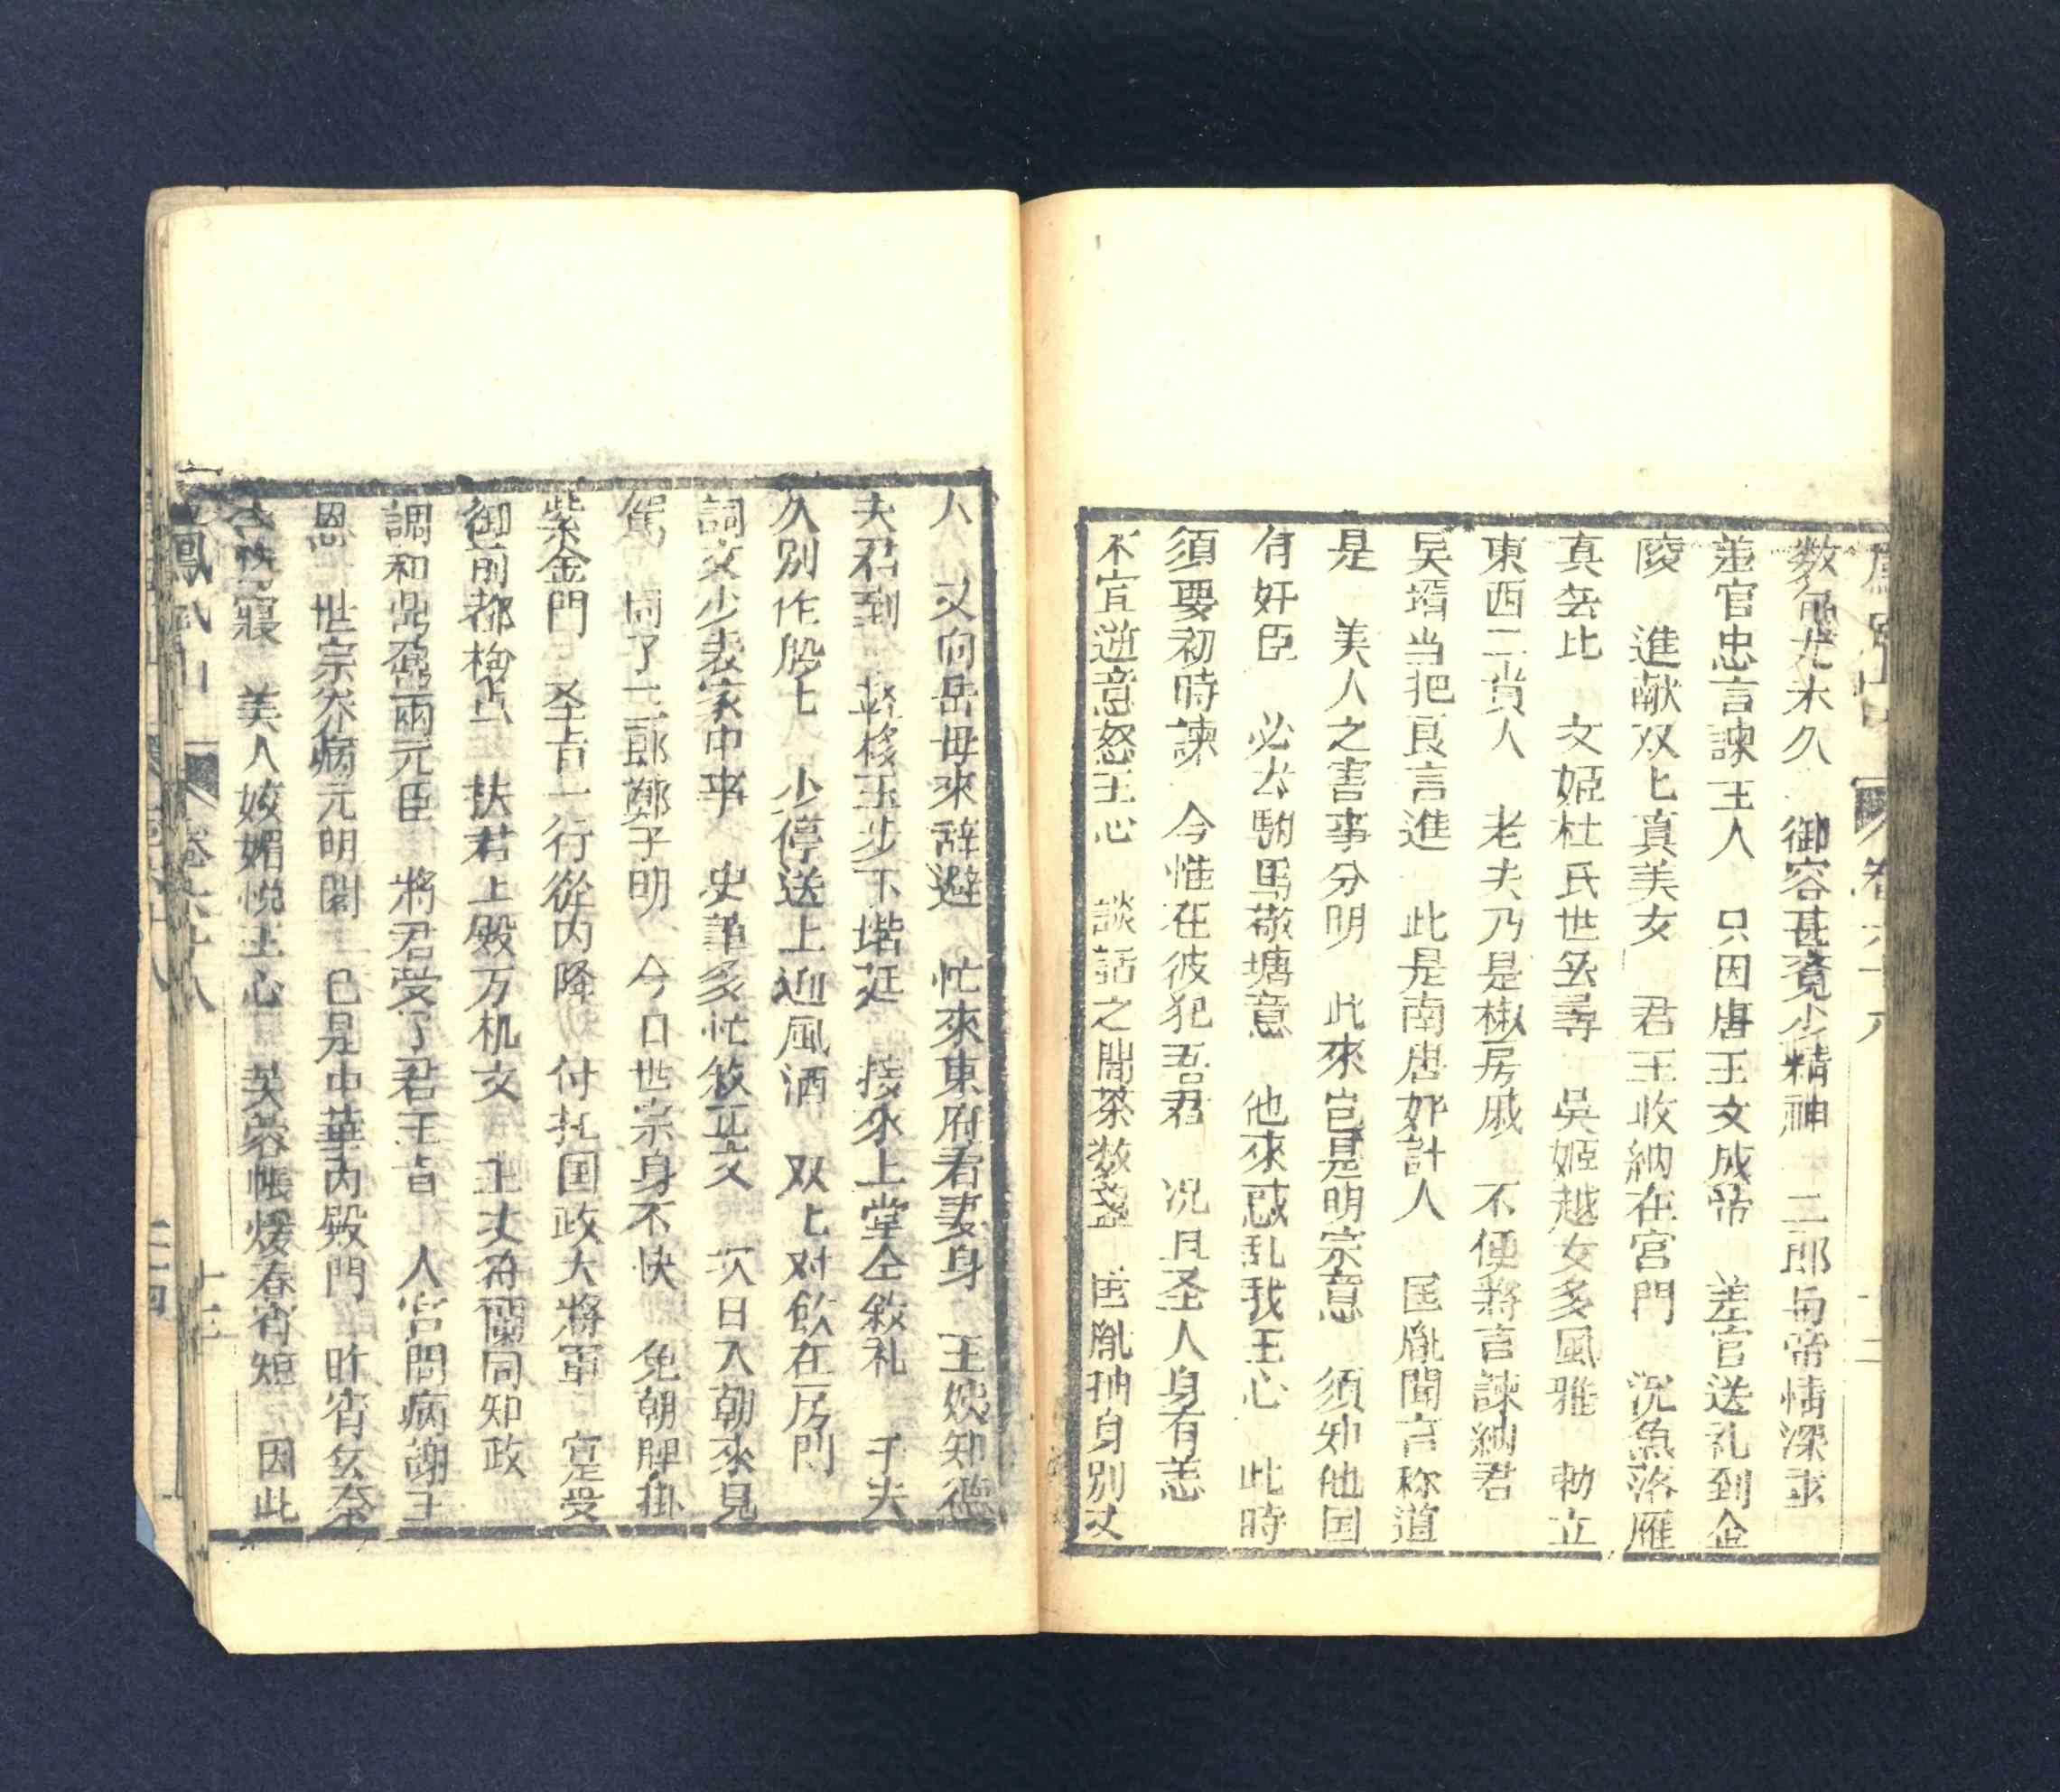 鳳凰山 卷六十八 十二
数命尤未久 御容甚覚少精神 二郎与帝情深重
差官忠言諫王人 只因唐王文成帝 差官送礼到金
陵 進献双匕真美女 君王收納在宮門 沉魚落雁
真無比 文姬杜氏世無尋 吳姬越女多風雅 勅立
東西二貴人 老夫乃是椒房戚 不便將言諫納君
吳壻当把良言進 此是南唐奸計人 匡胤聞言称道
是 美人之害事分明 此來豈是明宗意 須知他国
有奸臣 必太駙馬敬塘意 他來惑乱我王心 此時
須要初時諫 今惟在彼犯吾君 况且圣人身有恙
不宜逆意怒王心 談話之間茶数盏 匡胤抽身別丈
人 又向岳母來辞避 忙來東府看妻身 王娥知德
夫君到 玉步下堦廷 接來上堂仝敘礼 于夫
久別作殷匕 少停送上迎風酒 双匕对飲在房門
詞文少表家中事 史筆多忙敘正文 次日入朝來見
駕 同了三郎鄭子明 今日世宗身不快 免朝牌掛
紫金門 圣旨一行從内降 付托国政大將軍 寔受
御前都檢点 扶君上殿万机文 主文符蘭同知政
調和鼎鼐兩元臣 將君受了君王旨 人宮問病謝王
恩 世宗染病元明閣 已是中華内殿門 昨宵玄奈
寢 美人姣媚悦王心 芙蓉帳煖春宵短 因此
鳳凰山 卷六十八 十三